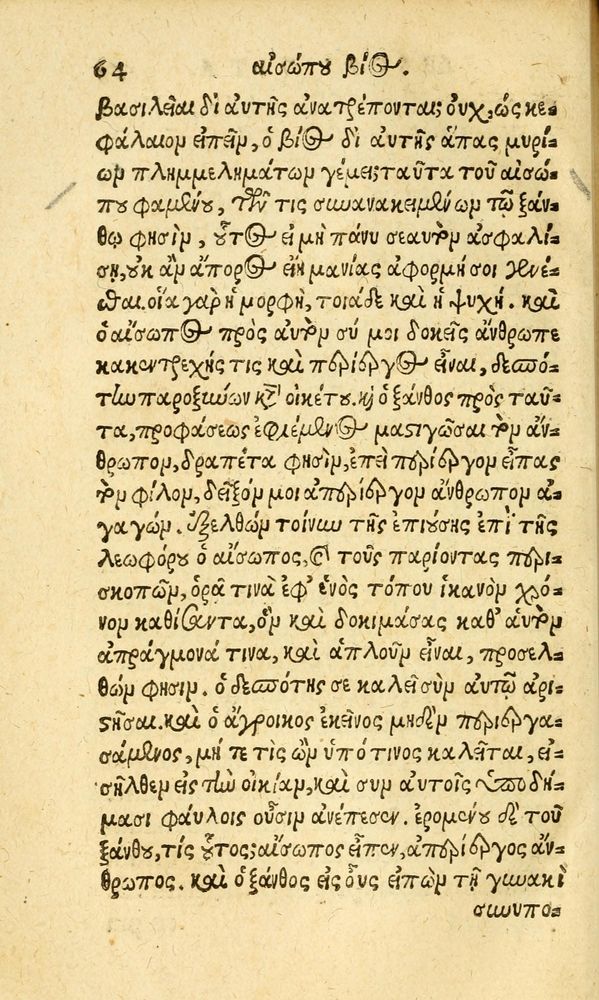 64 αἰσώπου βίος.
βασιλεῖαι δι αὐτῆς ἀνατρέπονται; οὐχ, ὡς κε=
φάλαιον εἰπεῖν, ὁ βίος δι αὐτῆς ἅπας μυρί=
ων πλημμελημάτων γέμει; ταῦτα τοῦ αἰσώ=
που φαμένου, τῶν τις συνανακειμένων τῷ ξάν=
θῳ φησὶν, οὗτος εἰ μὴ πάνυ σεαυτὸν ἀσφαλί=
σῃ, οὐκ ἂν ἄπορος εἴη μανίας ἀφορμή σοι γενέ=
σθαι. οἵα γὰρ ἡ μορφὴ, τοιάδε καὶ ἡ ψυχή. καὶ
ὁ αἴσωπος πρὸς αὐτὸν σύ μοι δοκεῖς ἄνθρωπε
κακεντρεχής τις καὶ περίεργος εἶναι, δεσπό=
την παροξύνων κατ οἰκέτου. καὶ ὁ ξάνθος πρὸς ταῦ=
τα, προφάσεως ἐφιέμενος μαστιγῶσαι τὸν ἄν=
θρωπον, δραπέτα φησὶν, ἐπεὶ περίεργον εἶπας
τὸν φίλον, δεῖξόν μοι ἀπερίεργον ἄνθρωπον ἀ=
γαγών. ἐξελθὼν τοίνυν τῆς ἐπιούσης ἐπὶ τῆς
λεωφόρου ὁ αἴσωπος, καὶ τοὺς παριόντας περι=
σκοπῶν, ὁρᾷ τινὰ ἐφ' ἑνὸς τόπου ἱκανὸν χρό=
νον καθίσαντα, ὃν καὶ δοκιμάσας καθ' αὑτὸν
ἀπράγμονά τινα, καὶ ἁπλοῦν εἶναι, προσελ=
θών φησιν. ὁ δεσπότης σε καλεῖ σὺν αὐτῷ ἀρι=
στῆσαι. καὶ ὁ ἄγροικος ἐκεῖνος μηδὲν περιεργα=
σάμενος, μή τε τίς ὢν ὑπό τινος καλεῖται, εἰ=
σῆλθεν εἰς τὴν οἰκίαν, καὶ συν αὐτοῖς ὑποδή=
μασι φαύλοις οὖσιν ἀνέπεσεν. ἐρομένου δὲ τοῦ
ξάνθου, τίς οὗτος; αἴσωπος εἶπεν, ἀπερίεργος ἄν=
θρωπος. καὶ ὁ ξάνθος εἰς οὖς εἰπὼν τῇ γυναικὶ
συνυπο=